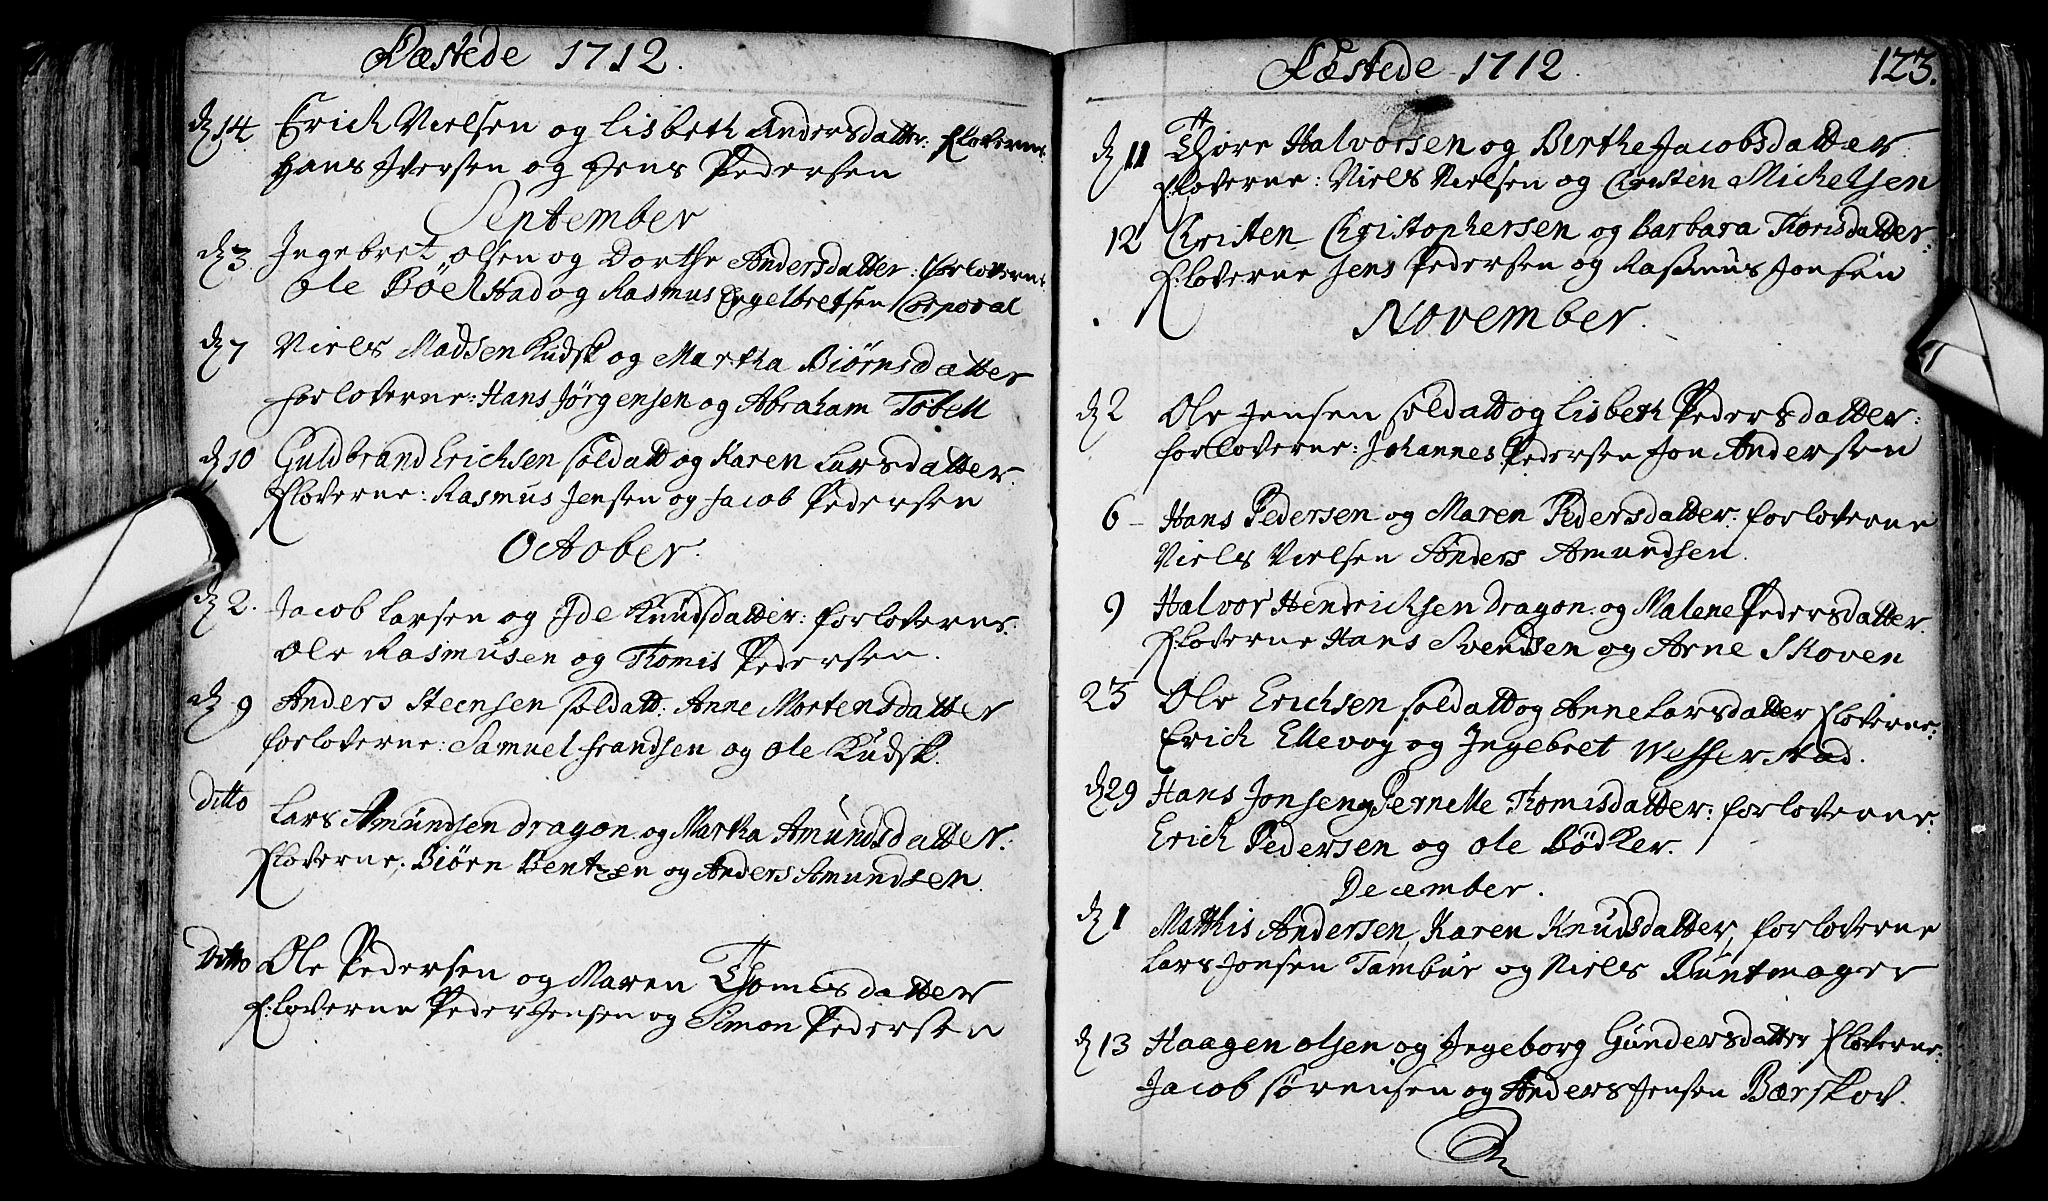 Fæstede 1712.
d 14. Erich Nielsen og Lisbeth Andersdatter: Floverne
Hans Iversen og Jens Pedersen
September
d 3 Ingebret Olsen og Dorthe Andersdatter: forloverne
Ole Böelstad og Rasmus Engelbretsen Corporal
d 7 Niels Madsen Kudsk og Martha Biörnsdatter
forloverne: Hans Jörgensen og Abraham Tobell
d 10 Guldbrand Erichsen soldatt og Karen Larsdatter.
Floverne: Rasmus Jensen og Jacob Pedersen
October.
d 2. Jacob Larsen og Ide Knudsdatter: forloverne:
Ole Rasmusen og Thomis Pedersen.
d 9 Anders Steensen soldatt: Anne Mortensdatter
forloverne: Samuel Frandsen og Ole Kudsk.
ditto Lars Amundsen dragon og Martha Amundsdatter:
Floverne: Biörn Bentzen og Anders Amundsen.
ditto Ole Pedersen og Maren Thomisdatter
F:loverne Peder Jensen og Simon Pedersen
Fæstede 1712. 123.
d 11 Thore Halvorsen og Birthe Jacobsdatter
F:loverne: Niels Nielsen og Christen Michelsen
12 Christen Christophersen og Barbara Thorisdatter:
F:loverne Jens Pedersen og Rasmus Jonsen
November.
d 2 Ole Jensen soldatt og Lisbeth Pedersdatter:
forloverne: Johannes Pedersen Jon Andersen
6 - Hans Pedersen og Maren Pedersdatter: forloverne
Niels Nielsen Anders Amundsen.
9 Halvor Hendrichsen Dragon og Malene Pedersdatter.
Floverne Hans Svendsen og Arne Skoven
23 Ole Erichsen soldatt og Anne Larsdatter Floverne:
Erich Ellevog og Ingebret Wefferstad.
d 29 Hans Jonsen og Pernelle Thomisdatter: forloverne:
Erich Pedersen og Ole Bödker.
December.
d 1 Matthis Andersen, Karen Knudsdatter, forloverne
Lars Jonsen Tambur og Niels Buntmager
d 13 Haagen Olsen og Ingeborg Gundersdatter Floverne:
Jacob Sörensen og Anders Jensen Bærskov.